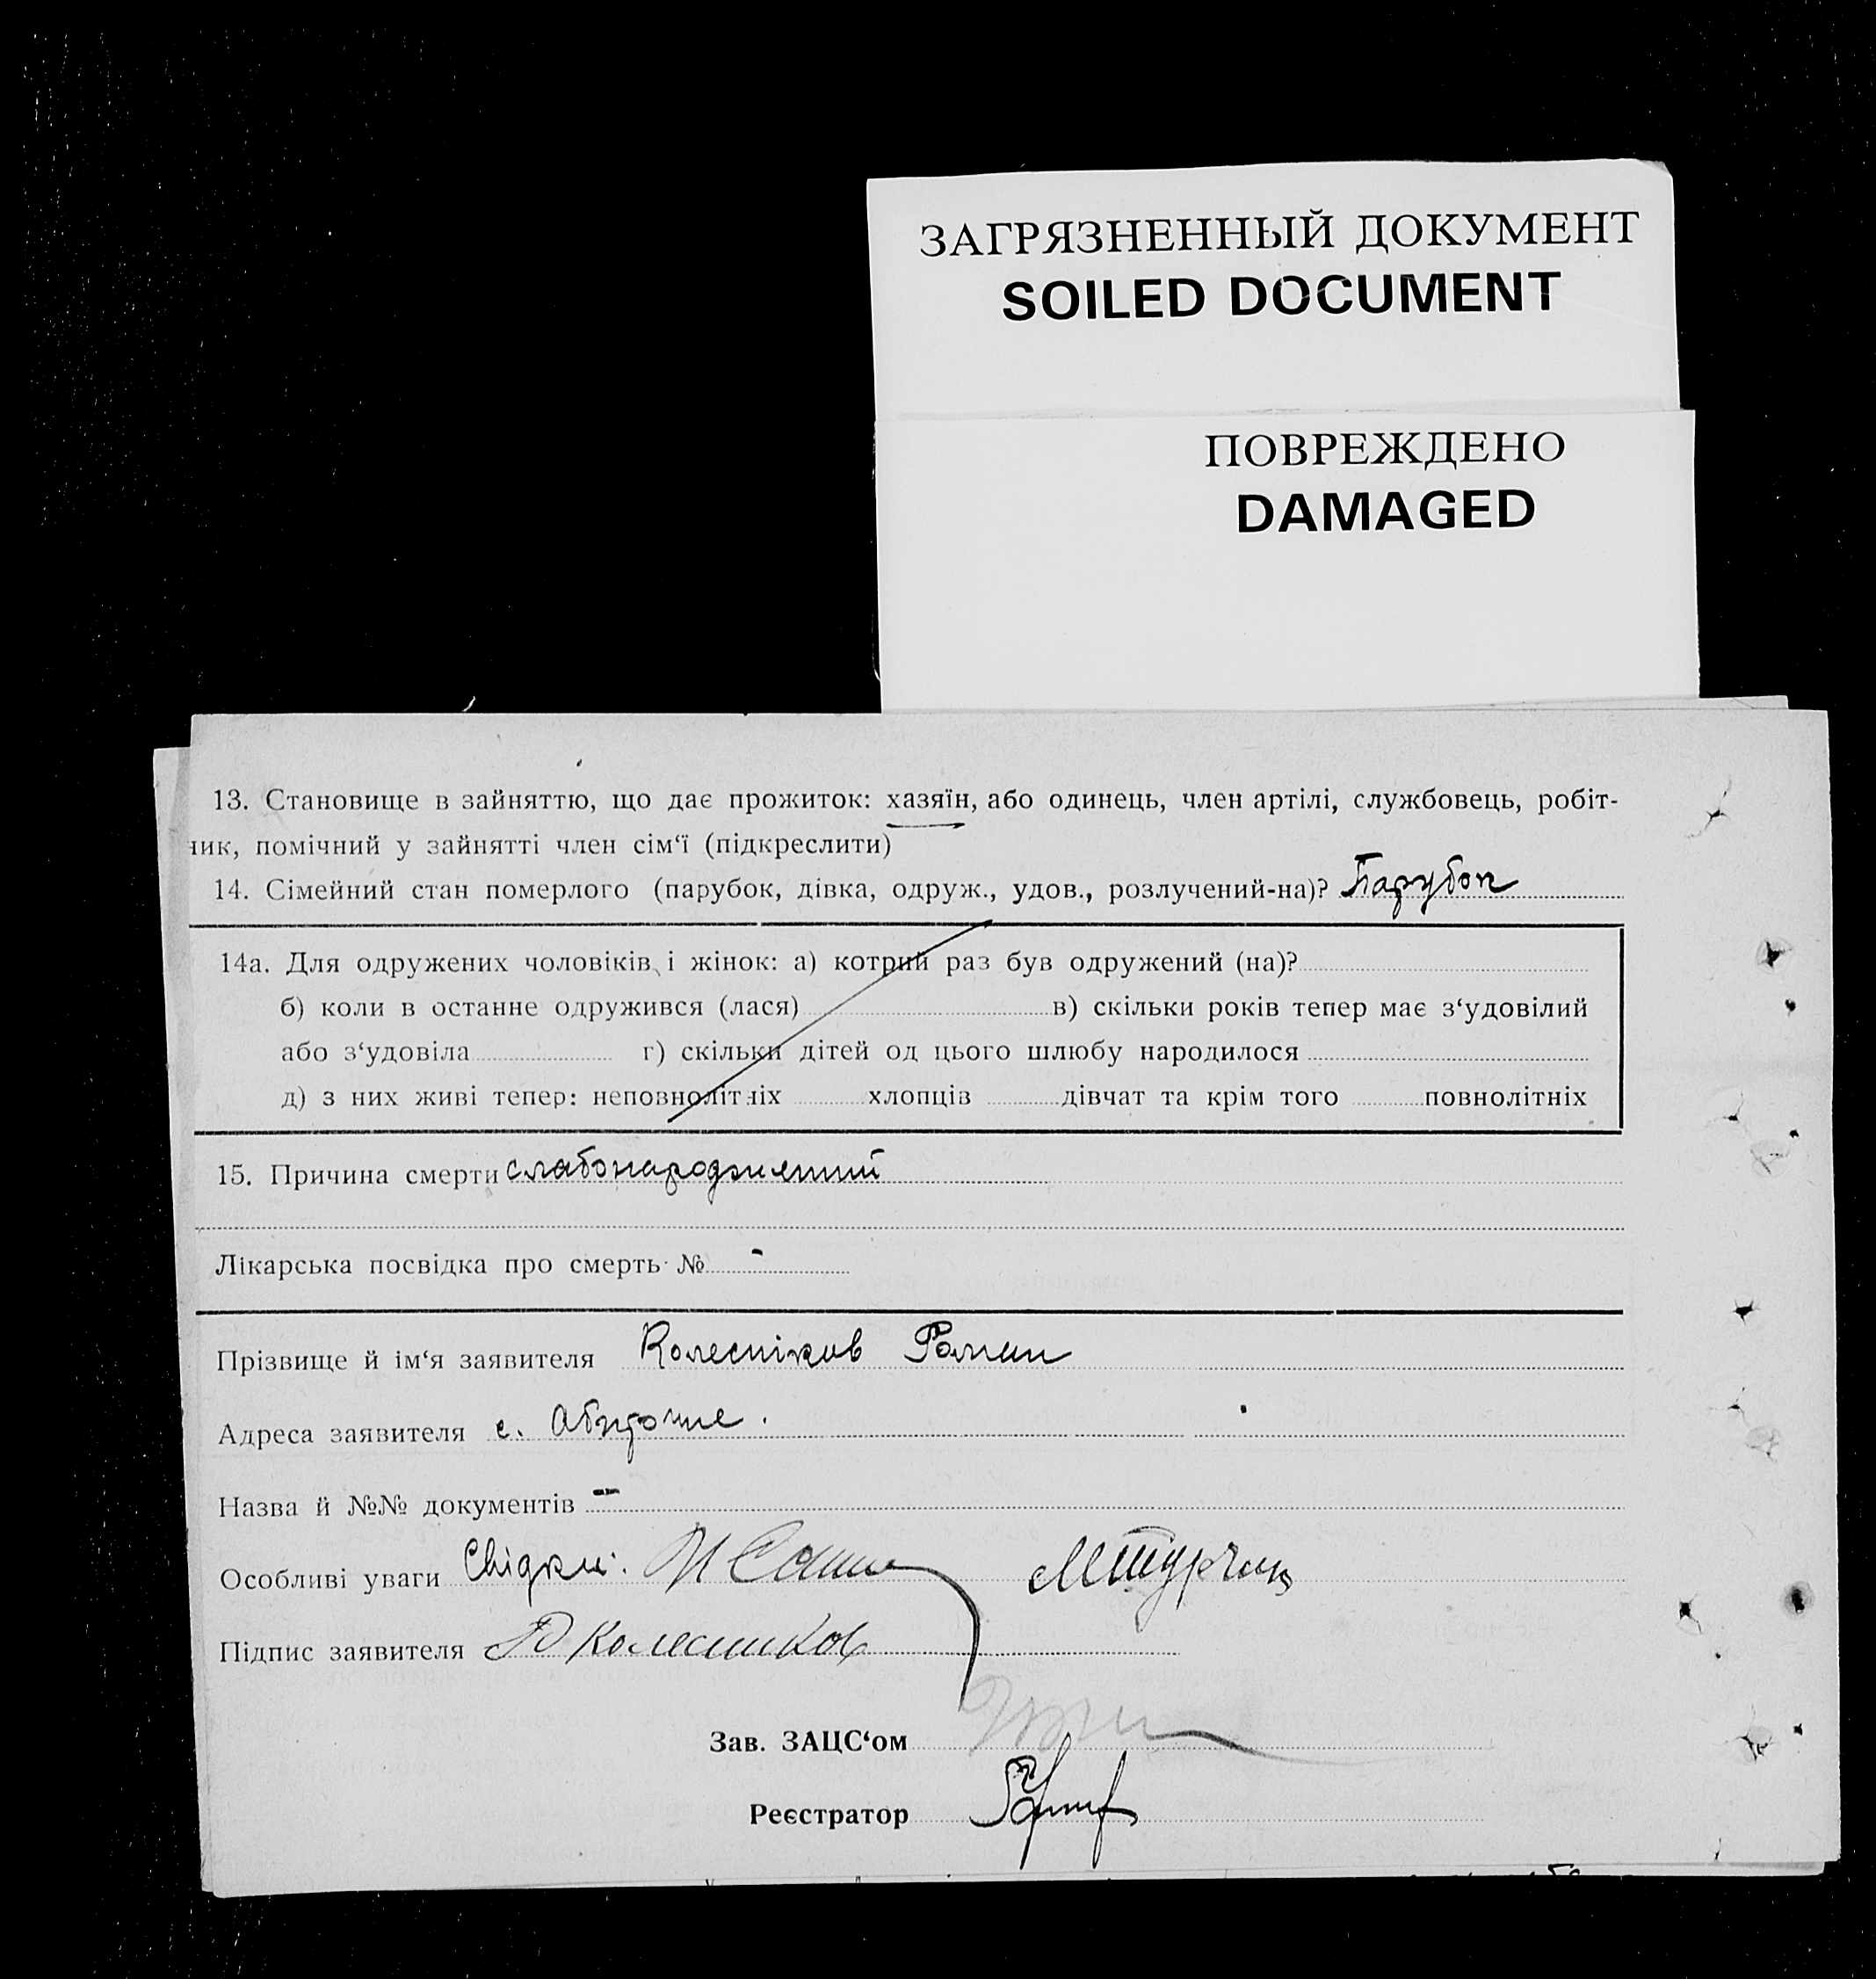 ЗАГРЯЗНЕННЫЙ ДОКУМЕНТ
SOILED DOCUMENT
ПОВРЕЖДЕНО
DAMAGED
13. Становище в зайняттю, що дає прожиток: хазяїн, або одинець, член артілі, службовець, робіт-
ник, помічний у зайнятті член сім‘ї (підкреслити)
14. Сімейний стан померлого (парубок, дівка, одруж., удов., розлучений-на)? Парубок
14а. Для одружених чоловіків і жінок: а) котрий раз був одружений (на)?
б) коли в останне одружився (лася) в) скільки років тепер має з‘удовілий
або з‘удовіла г) скільки дітей од цього шлюбу народилося
д) з них живі тепер: неповнолітніх хлопців дівчат та крім того повнолітніх
15. Причина смерти слабонароджений
Лікарська посвідка про смерть №  -
Прізвище й ім‘я заявителя Колесніков Роман
Адреса заявителя с.
Назва й №№ документів —
Особливі уваги Свідки:
Підпис заявителя Р Колесников
Зав. ЗАЦС‘ом
Реєстратор